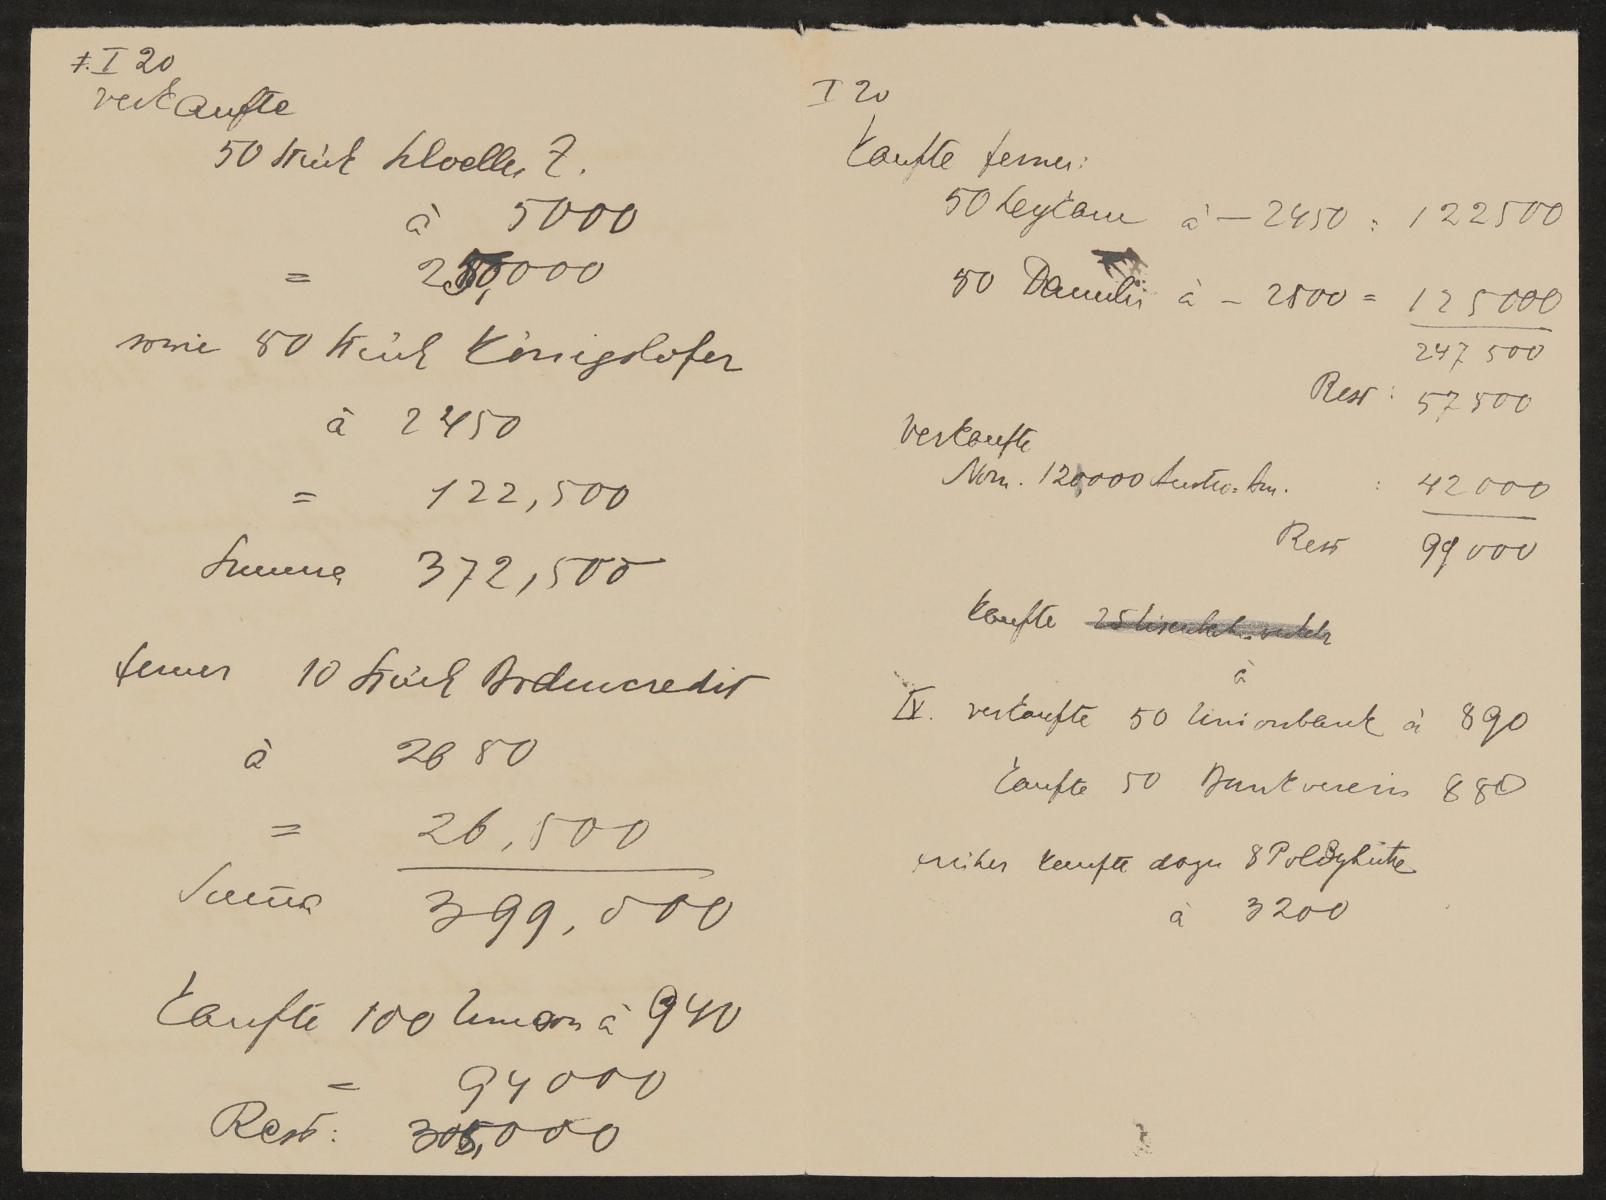 I 20
verkaufte
50 Stück Schoeller Z.
à 5000
= 250,000
sowie 50 Stück Königshofer
à 2450
= 122,500
Summa 372,500
ferner 10 Stück Bodencredit
à 2650
= 26,500
Suma 399,000
Kaufte 100 Union à 940
= 94000
Rest: 305,000
I 20
Kaufte ferner:
50 Leykam à – 2450 : 122500
50 à – 2500 = 125000
247 500
Rest: 57 500
Verkaufte
Nom. 120,000 : 42000
Rest 99000
Kaufte
à
IV. verkaufte 50 Unionbank à 890
Kaufte 50 Bankverein 880
früher kaufte dazu 8 Poldyhütte
à 3200